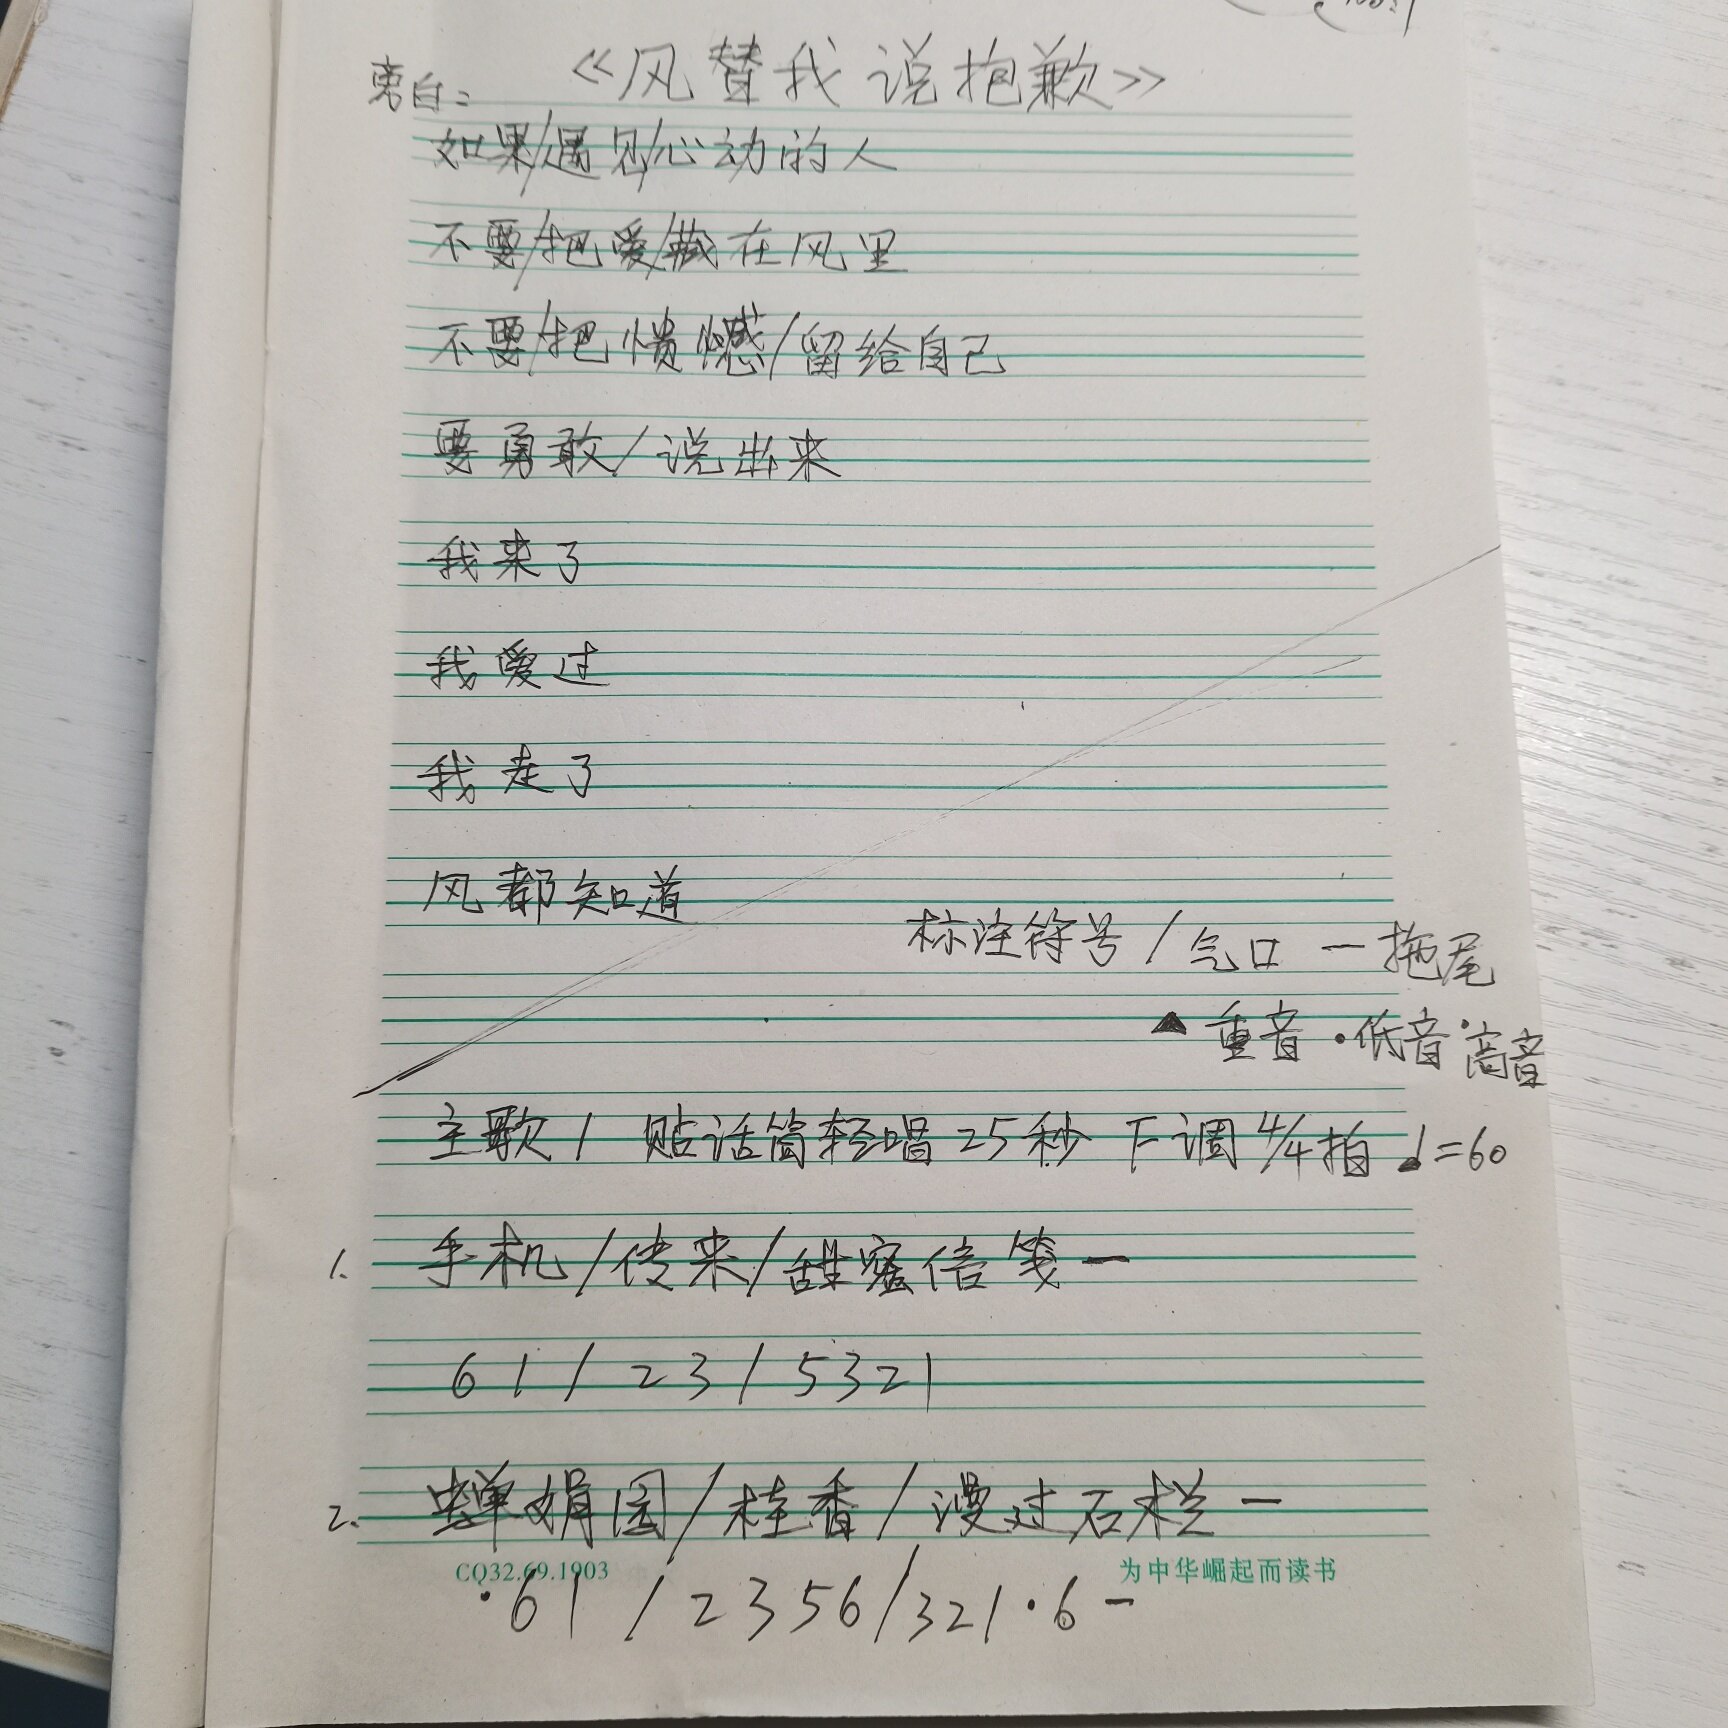 《风替我说抱歉》
旁白：
如果/遇见/心动的人
不要/把爱/藏在风里
不要/把愦憾/留给自己
要勇敢/说出来
我来了
我爱过
我走了
风都知道
标注符号 / 气口 — 拖尾
▲ 重音 ·低音 ˙高音
主歌1 贴话筒轻唱25秒 F调 4/4拍 ♩=60
1. 手机/传来/甜蜜信笺—
6 1 / 2 3 / 5 3 2 1
2. 婵娟园/桂香/漫过石栏—
CQ32.69.1903 为中华崛起而读书
·6 1 / 2 3 5 6 / 3 2 1 ·6 —